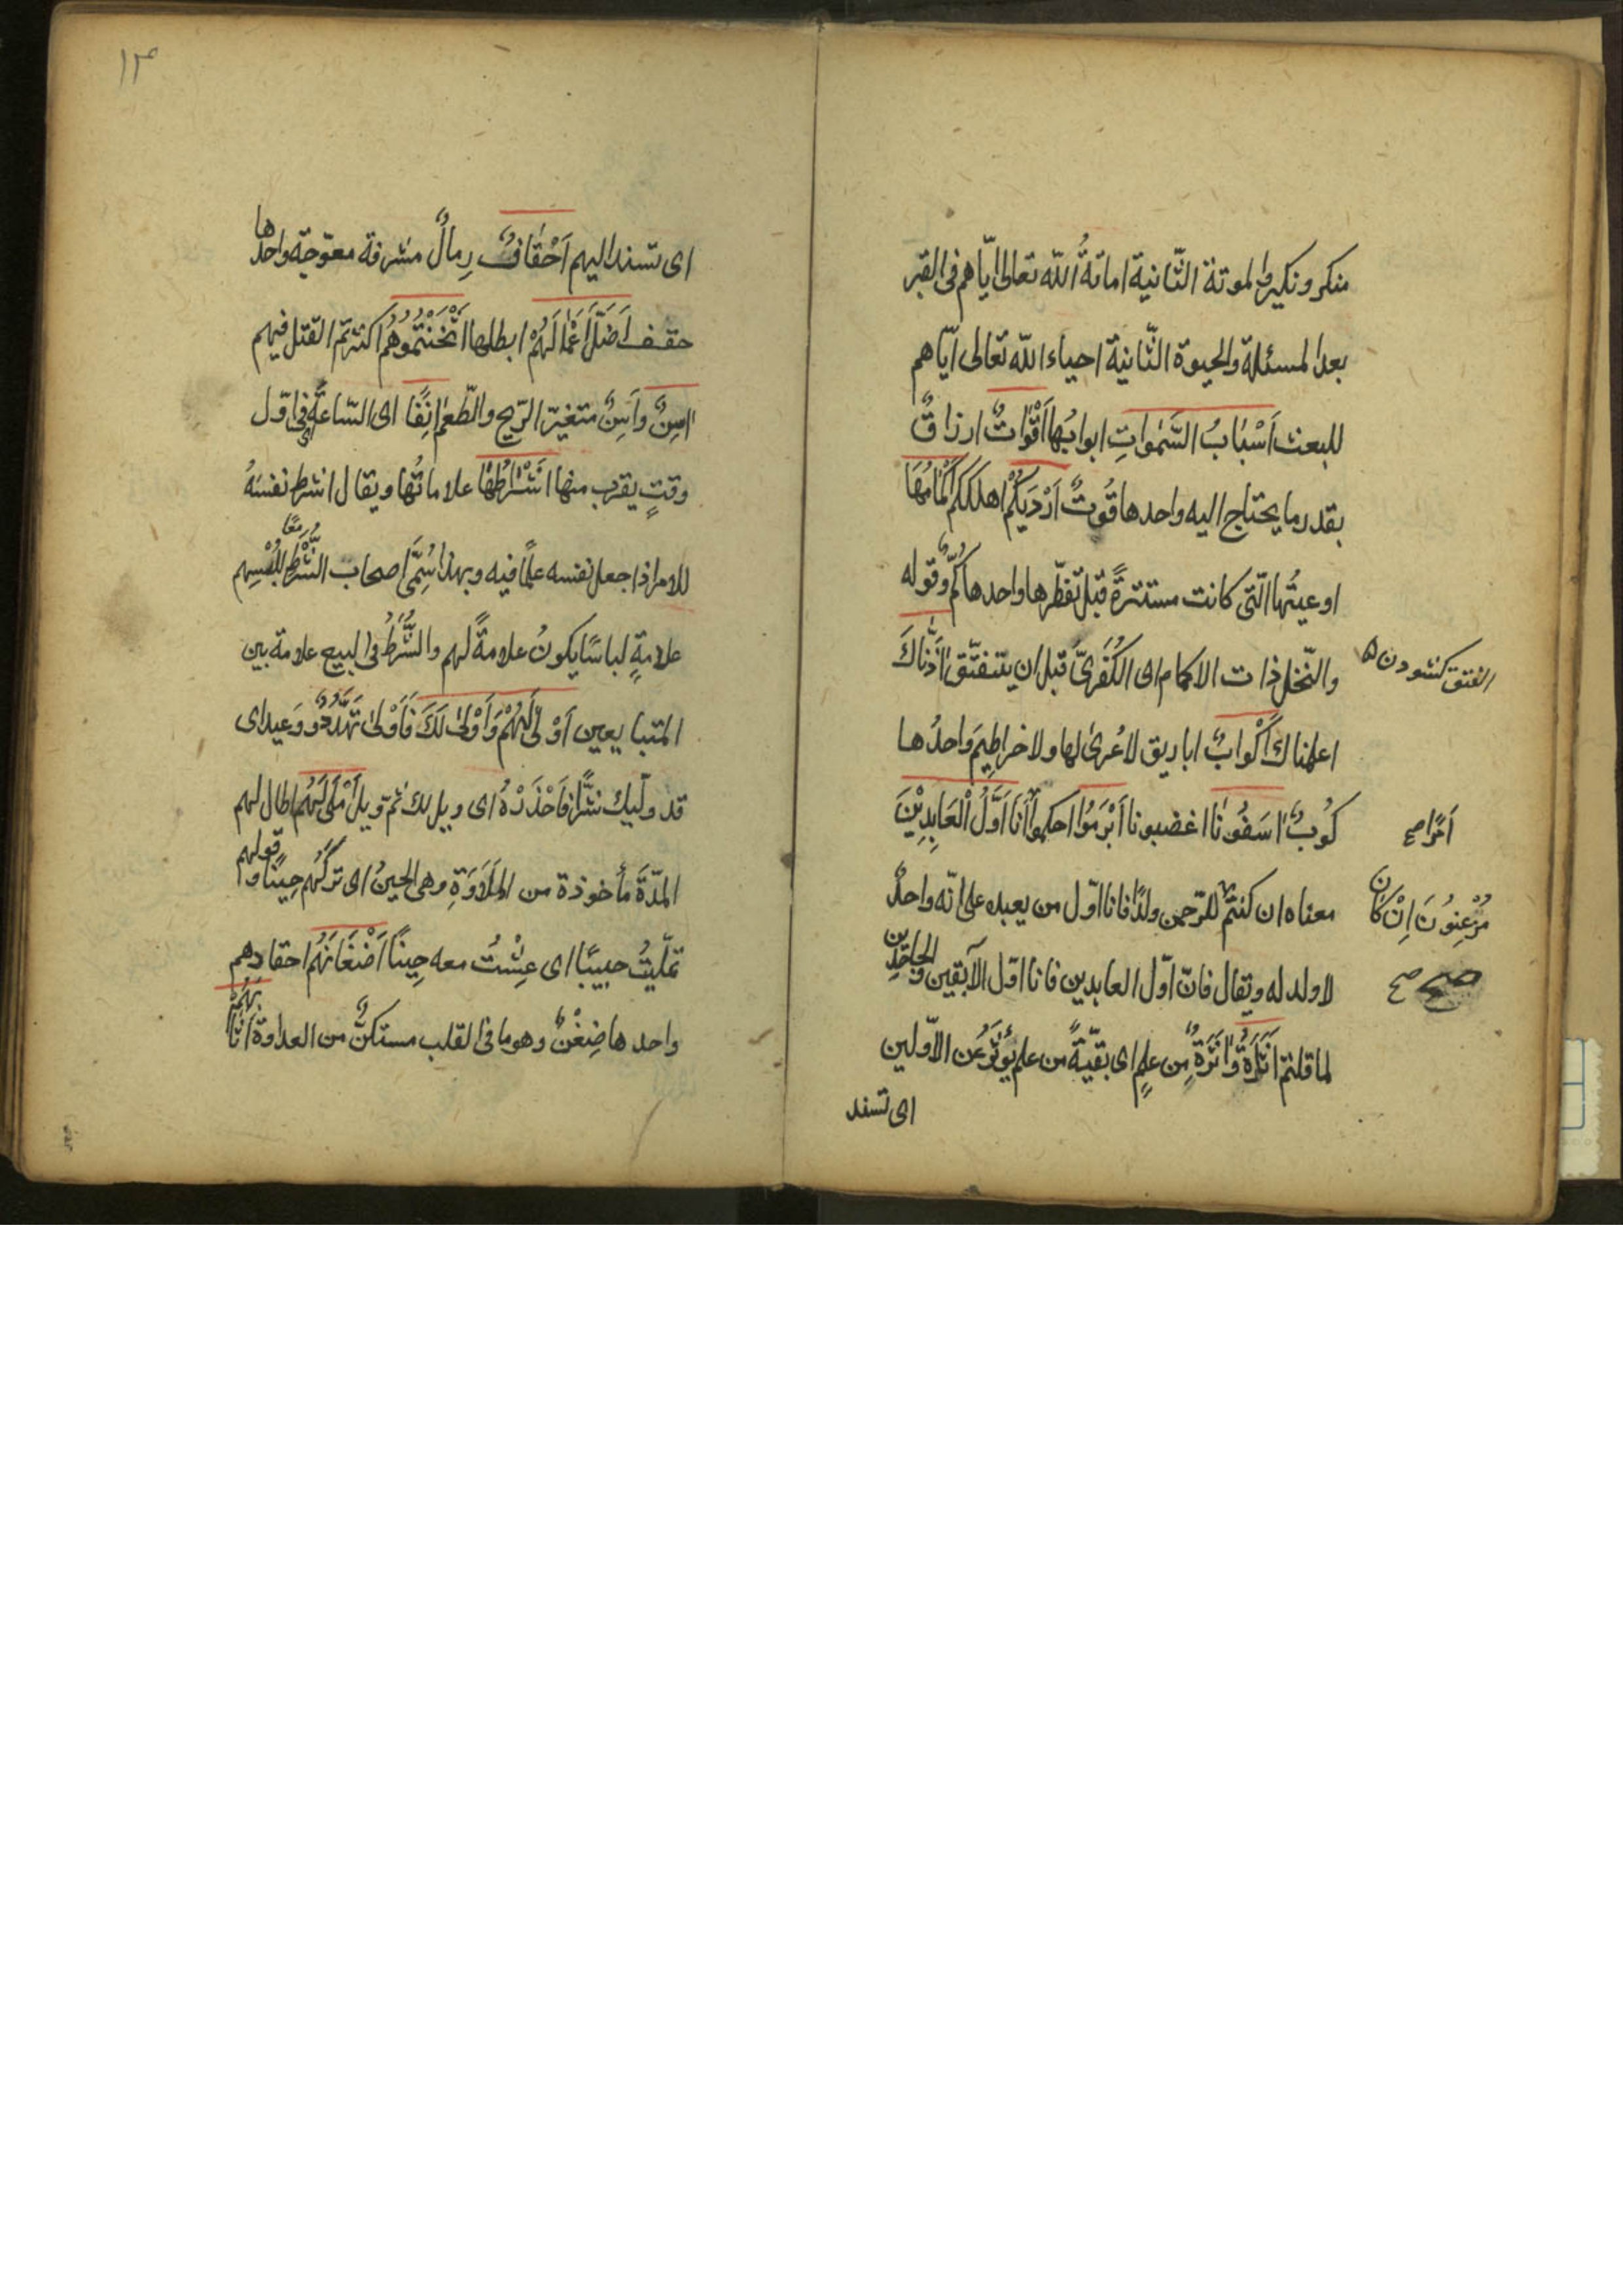 منكر ونكير والموتة الثّانية اماتةُ اللّه تعالى ايّاهم فى القبر
بعد المسئلة والحيوة الثّانية احياء اللّه تعالى ايّاهم
للبعث اَسْبَابُ السَّمٰواتِ ابوابُها اَقْوَاتٌ ارزاقٌ
بقدر ما يحتاج اليه واحدها قُوتٌ اَرْدَيكُمْ اهلككم اَكْمَامُهَا
اوعيتُها الّتى كانت مستترةً قبل تفطّرها واحدها كُمٌّ وقوله
والنّخل ذات الاكمام اى الكُفَرىّ قبل ان يتفتّق آذَنّاكَ
الفتق كشودن
اعلمناك اَكْوَابٌ اباريق لا عُرىٰ لها ولا خراطِيمَ واحدُها
كُوبٌ اٰسَفُونَا اغضبونا اَبْرَمُوا احكموا اَنَا اَوَّلُ الْعَابِدِيْنَ
اَمْرًا صح
معناه ان كنتم للرّحمن ولدًا فانا اوّل من يعبده على انّه واحدٌ
مُزْعِنُونَ اِنْ كَانَ
لا ولد له ويقال فانّ اوّل العابدين فانا اوّل الآبقين والجاحدين
صح صح
لما قلتم اَثَارَةٌ وَاَثَرَةٌ مِن علمٍ اى بقيّةً من علم يُؤثَرُ عَن الاوّلين
اى تسند
١٣
اى تسند اليهم اَحْقَافٌ رِمالٌ مشرفة معوّجة واحدها
حقف اَضَلَّ اَعْمَالَهُمْ ابطلها اَثْخَنْتُمُوهُمْ اكثرتم القتل فيهم
اٰسِنٌ وَاَسِنٌ متغيّر الرّيح والطّعم اٰنِفًا اى السّاعة اى فى اوّل
وقتٍ يقرب منها اَشْرَاطُهَا علاماتُها ويقال اشرط نفسَهُ
للامر اذا جعل نفسه علمًا فيه وبهذا سُمِّىَ اصحاب الشُّرَط لِلُبْسِهِم
معًا
علامةٍ لباسًا يكونُ علامةً لهم والشَّرْطُ فى البيع علامة بين
المتبايعين اَوْلىٰ لَهُمْ وَاَوْلىٰ لَكَ فَاَوْلىٰ تَهَدُّدٌ وَوَعِيد اى
قد وليك شرٌّ فَاحْذَرْهُ اى ويل لك ثم ويل اَمْلىٰ لَهُمْ اطال لهم
المدّةَ مأخوذة من المَلَاوَةِ وهى الحين اى تركهم حِينًا وقولهم
تملّيتُ حبيبًا اى عِشْتُ معه حِينًا اَضْغَانَهُم احقادهم
واحدها ضِغْنٌ وهو ما فى القلب مستكنٌّ من العداوة اَثَابَهُمْ